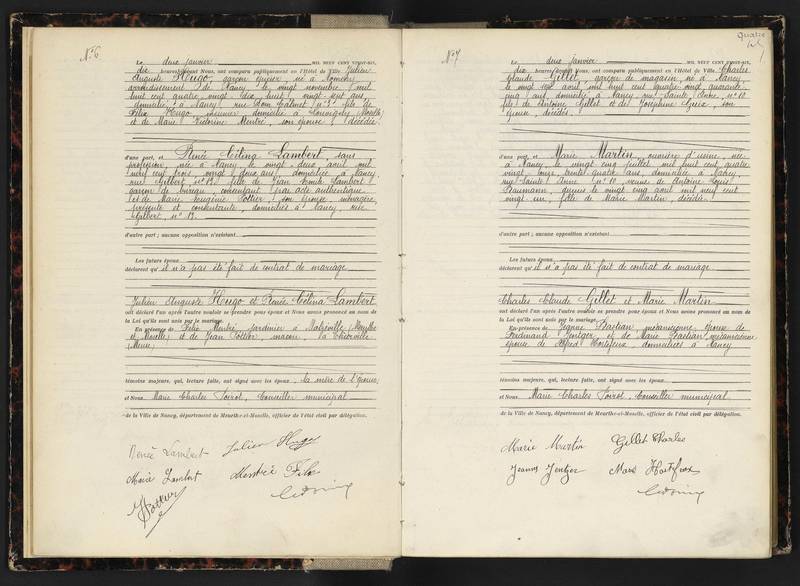 N° 6
Le deux janvier MIL NEUF CENT VINGT-SIX,
dix heures devant Nous, ont comparu publiquement en l'Hôtel de Ville Julien
Auguste Hugo, garçon épicier, né à Nomeny
arrondissement de Nancy le vingt novembre mil
huit cent quatre vingt dix huit, vingt sept ans,
domicilié à Nancy, rue Dom Calmet, n° 3, fils de
Félix Hugo domicilié à Louvigny (Moselle)
et de Marie Victorine Mentré, son épouse, décédée
d'une part, et Renée Célina Lambert, sans
profession, née à Nancy le vingt deux août mil
neuf cent trois, vingt deux ans, domiciliée à Nancy,
rue Gilbert, n° 13, fille de Jean Lambert
garçon de bureau, consentant par acte authentique
et de Marie Eugénie Pottier, son épouse, ménagère
présente et consentante, domiciliés à Nancy, rue
Gilbert, n° 13.
d'autre part ; aucune opposition n'existant
Les futurs époux
déclarent qu'il n'a pas été fait de contrat de mariage
Julien Auguste Hugo et Renée Célina Lambert
ont déclaré l'un après l'autre vouloir se prendre pour époux et Nous avons prononcé au nom de
la Loi qu'ils sont unis par le mariage.
En présence de Félix Mentré, jardinier à Malzéville (Meurthe
et Moselle) et de Jean Pottier, maçon, à Thierville
(Meuse)
témoins majeurs, qui, lecture faite, ont signé avec les époux, la mère de l'épouse
et Nous Marie Charles Poirot, Conseiller municipal
de la Ville de Nancy, département de Meurthe-et-Moselle, officier de l'état civil par délégation.
Renée Lambert Julien Hugo
Marie Lambert Mentré Félix
Pottier
Quatre
N° 7
Le deux janvier MIL NEUF CENT VINGT-SIX,
dix heures devant Nous, ont comparu publiquement en l'Hôtel de Ville Charles
Claude Gillet, garçon de magasin, né à Nancy,
le vingt sept avril mil huit cent quatre vingt quatre,
ans, domicilié à Nancy, rue Sainte Anne, n° 10
fils de Antoine Gillet et de Joséphine son
épouse, décédés.
d'une part, et Marie Martin, ouvrière d'usine, née
à Nancy, le vingt cinq juillet mil huit cent quatre
vingt onze, trente quatre ans, domiciliée à Nancy,
rue Sainte Anne, n° 10, veuve de Antoine Louis
depuis le vingt cinq août mil neuf cent
vingt un, fille de Marie Martin, décédée.
d'autre part ; aucune opposition n'existant
Les futurs époux
déclarent qu'il n'a pas été fait de contrat de mariage
Charles Claude Gillet et Marie Martin
ont déclaré l'un après l'autre vouloir se prendre pour époux et Nous avons prononcé au nom de
la Loi qu'ils sont unis par le mariage.
En présence de Jeanne Bastian, mécanicienne, épouse de
Ferdinand et de Marie Bastian, mécanicienne
épouse de Alfred Hortefeux, domiciliées à Nancy
témoins majeurs, qui, lecture faite, ont signé avec les époux
et Nous Marie Charles Poirot, Conseiller municipal
de la Ville de Nancy, département de Meurthe-et-Moselle, officier de l'état civil par délégation.
Marie Martin Gillet Charles
Jeanne Marie Hortefeux